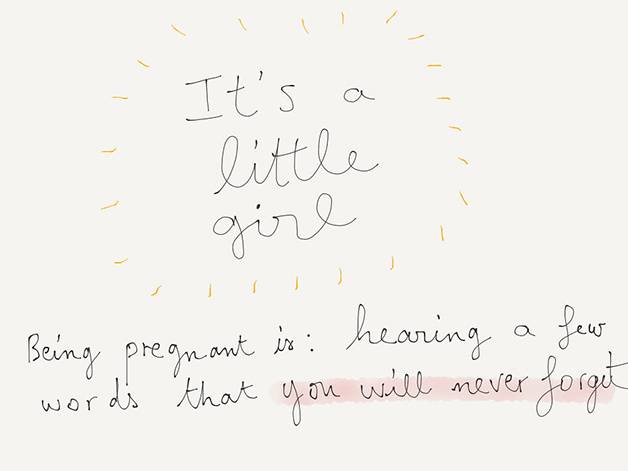 It's a
little
girl
Being pregnant is: hearing a few
words that you will never forget